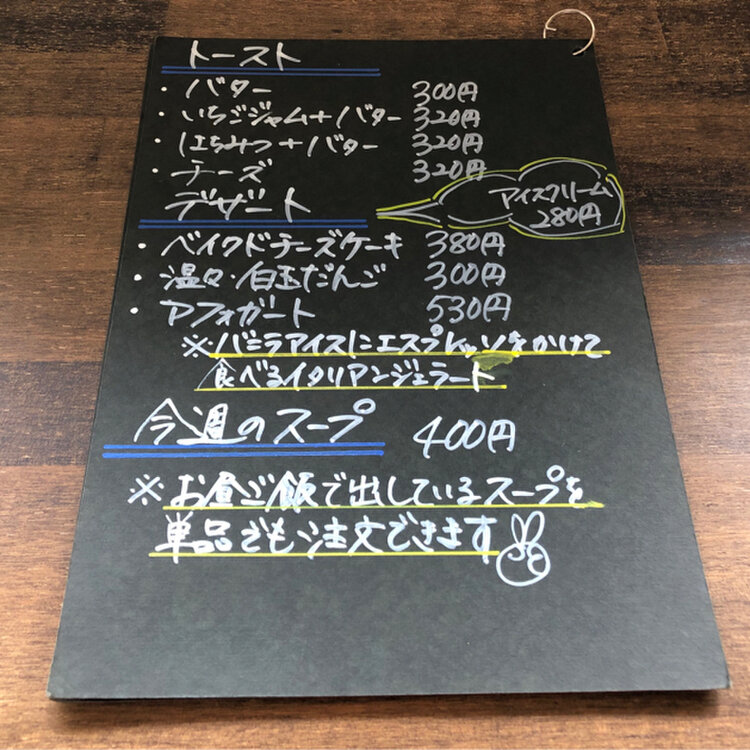 トースト
・バター 300円
・いちごジャム+バター 320円
・はちみつ+バター 320円
・チーズ 320円
デザート
アイスクリーム
280円
・ベイクドチーズケーキ 380円
・温々・白玉だんご 300円
・アフォガート 530円
※バニラアイスにエスプレッソをかけて
食べるイタリアンジェラート
今週のスープ 400円
※お昼ご飯で出しているスープを
単品でも注文できます